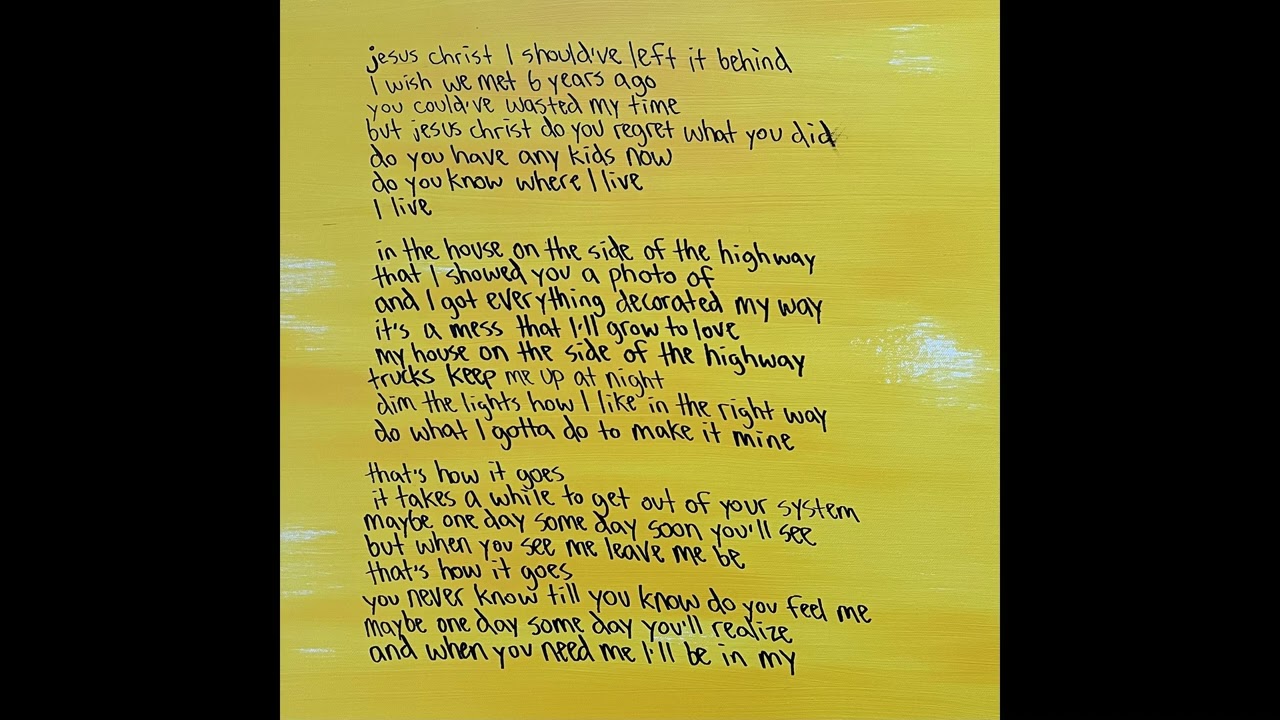 jesus christ I should've left it behind
I wish we met 6 years ago
you could've wasted my time
but jesus christ do you regret what you did
do you have any kids now
do you know where I live
I live
in the house on the side of the highway
that I showed you a photo of
and I got everything decorated my way
it's a mess that I'll grow to love
my house on the side of the highway
trucks keep me up at night
dim the lights how I like in the right way
do what I gotta do to make it mine
that's how it goes
it takes a while to get out of your system
maybe one day some day soon you'll see
but when you see me leave me be
that's how it goes
you never know till you know do you feel me
maybe one day some day you'll realize
and when you need me I'll be in my